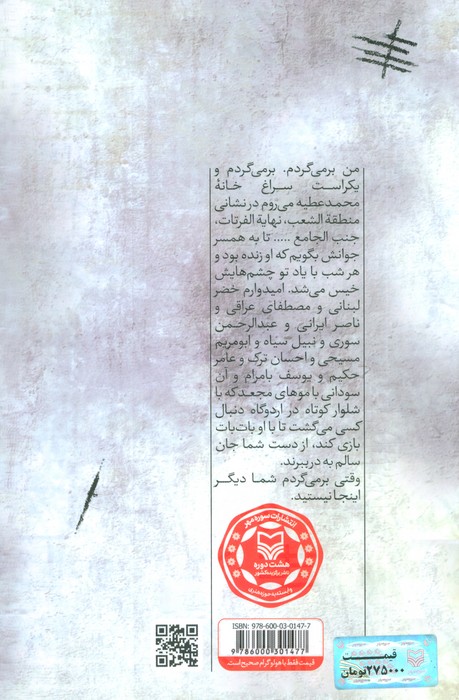 من برمی‌گردم. برمی‌گردم و
یکراست سراغ خانهٔ
محمد عطیه می‌روم در نشانی
منطقة الشعب، نهایة الفرتات،
جنب الجامع ..... تا به همسر
جوانش بگویم که او زنده بود و
هر شب با یاد تو چشم‌هایش
خیس می‌شد. امیدوارم خضر
لبنانی و مصطفای عراقی و
ناصر ایرانی و عبدالرحمن
سوری و نبیل سیاه و ابومریم
مسیحی و احسان ترک و عامر
حکیم و یوسف بامرام و آن
سودانی با موهای مجعد که با
شلوار کوتاه در اردوگاه دنبال
کسی می‌گشت تا با او بات‌بات
بازی کند، از دست شما جان
سالم به در ببرند.
وقتی برمی‌گردم شما دیگر
اینجا نیستید.
انتشارات سوره مهر
هشت دوره
ناشر برگزیده کشور
وابسته به حوزه هنری
ISBN: 978-600-03-0147-7
9 786000 301477
قیمت فقط با هولوگرام صحیح است.
قیمت
۲۷۵۰۰۰تومان